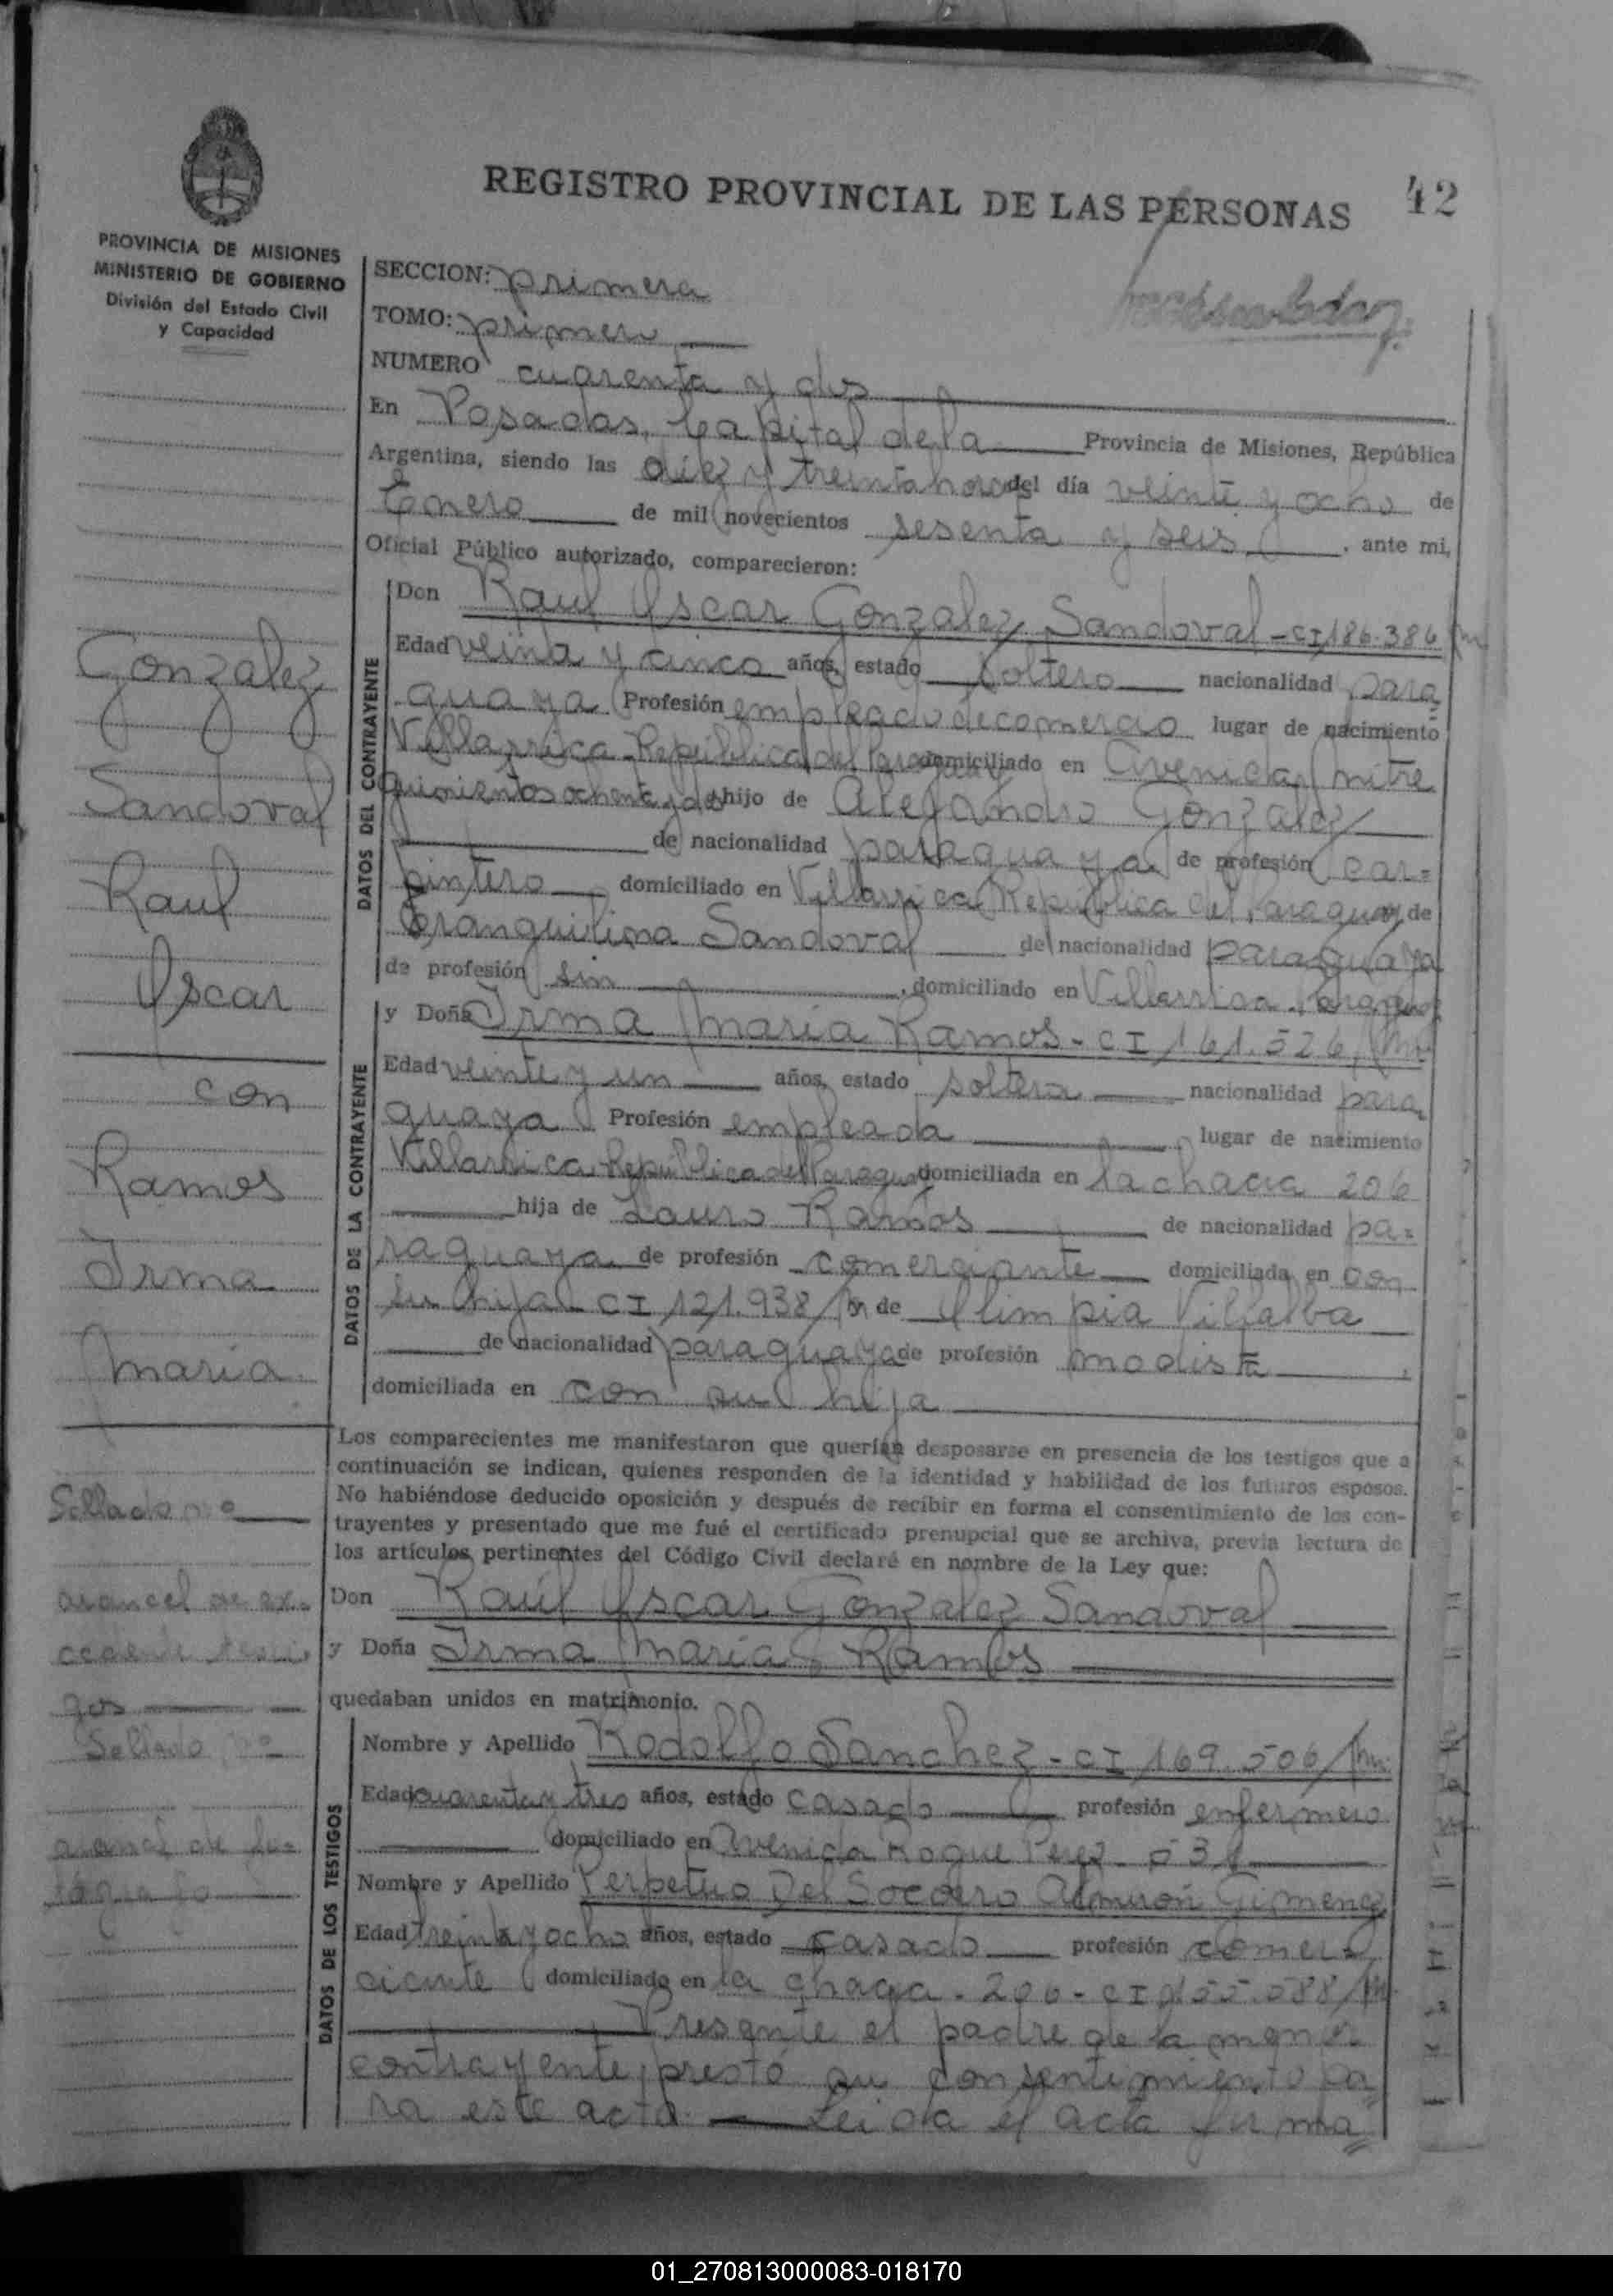 REGISTRO PROVINCIAL DE LAS PERSONAS
42
PROVINCIA DE MISIONES
MINISTERIO DE GOBIERNO
División del Estado Civil
y Capacidad
SECCION: primera
TOMO: primero
NUMERO cuarenta y dos
En Posadas, Capital de la Provincia de Misiones, República
Argentina, siendo las diez y treinta horas del día veinte y ocho de
Enero de mil novecientos sesenta y seis, ante mi,
Oficial Público autorizado, comparecieron:
DATOS DEL CONTRAYENTE
Don Raul Oscar Gonzalez Sandoval - CI 186.386/m
Edad veinte y cinco años, estado soltero nacionalidad para
guaya Profesión empleado de comercio lugar de nacimiento
Villarrica - República del Paraguay domiciliado en Avenida Mitre
quinientos ochenta y dos hijo de Alejandro Gonzalez
de nacionalidad paraguaya de profesión car=
pintero domiciliado en Villarrica República del Paraguay y de
Tranquilina Sandoval de nacionalidad paraguaya
de profesión sin, domiciliado en Villarrica. Paraguay
DATOS DE LA CONTRAYENTE
y Doña Irma Maria Ramos - CI 161.526/m
Edad veinte y un años, estado soltera nacionalidad para
guaya Profesión empleada, lugar de nacimiento
Villarrica República del Paraguay domiciliada en la chacra 206
hija de Lauro Ramos de nacionalidad pa=
raguaya de profesión comerciante domiciliada en con
su hija - CI 121.938/m y de Olimpia Villalba
de nacionalidad paraguaya de profesión modista,
domiciliada en con su hija
Gonzalez
Sandoval
Raul
Oscar
con
Ramos
Irma
Maria
Los comparecientes me manifestaron que querían desposarse en presencia de los testigos que a
continuación se indican, quienes responden de la identidad y habilidad de los futuros esposos.
No habiéndose deducido oposición y después de recibir en forma el consentimiento de los con-
trayentes y presentado que me fué el certificado prenupcial que se archiva, previa lectura de
los artículos pertinentes del Código Civil declaré en nombre de la Ley que:
Don Raúl Oscar Gonzalez Sandoval
y Doña Irma Maria Ramos
quedaban unidos en matrimonio.
Sellado
arancel de ex=
cedente testi=
gos
Sellado
DATOS DE LOS TESTIGOS
Nombre y Apellido Rodolfo Sanchez - CI 169.506/m
Edad cuarenta y tres años, estado casado profesión enfermero
domiciliado en Avenida Roque Perez 531
Nombre y Apellido Perpetuo Del Socorro Almirón Gimenez
Edad treinta y ocho años, estado casado profesión comer=
ciante domiciliado en la chacra. 206 - CI 155.588/m
Presente el padre de la menor
contrayente, prestó su consentimiento pa=
ra este acto. Leida el acta firma=
01_270813000083-018170